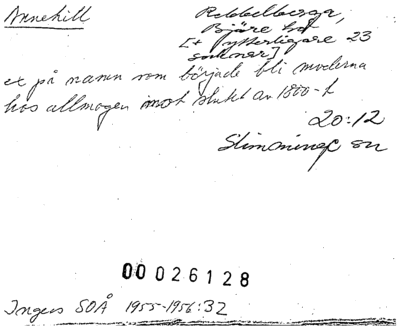 Annehill
Rebbelberga,
Bjäre hd
[+ ytterligare 23
socknar]
ex på namn som började bli moderna
hos allmogen mot slutet av 1800-t
20:12
Stimming sn
00026128
Ingers SOÅ 1955-1956:32